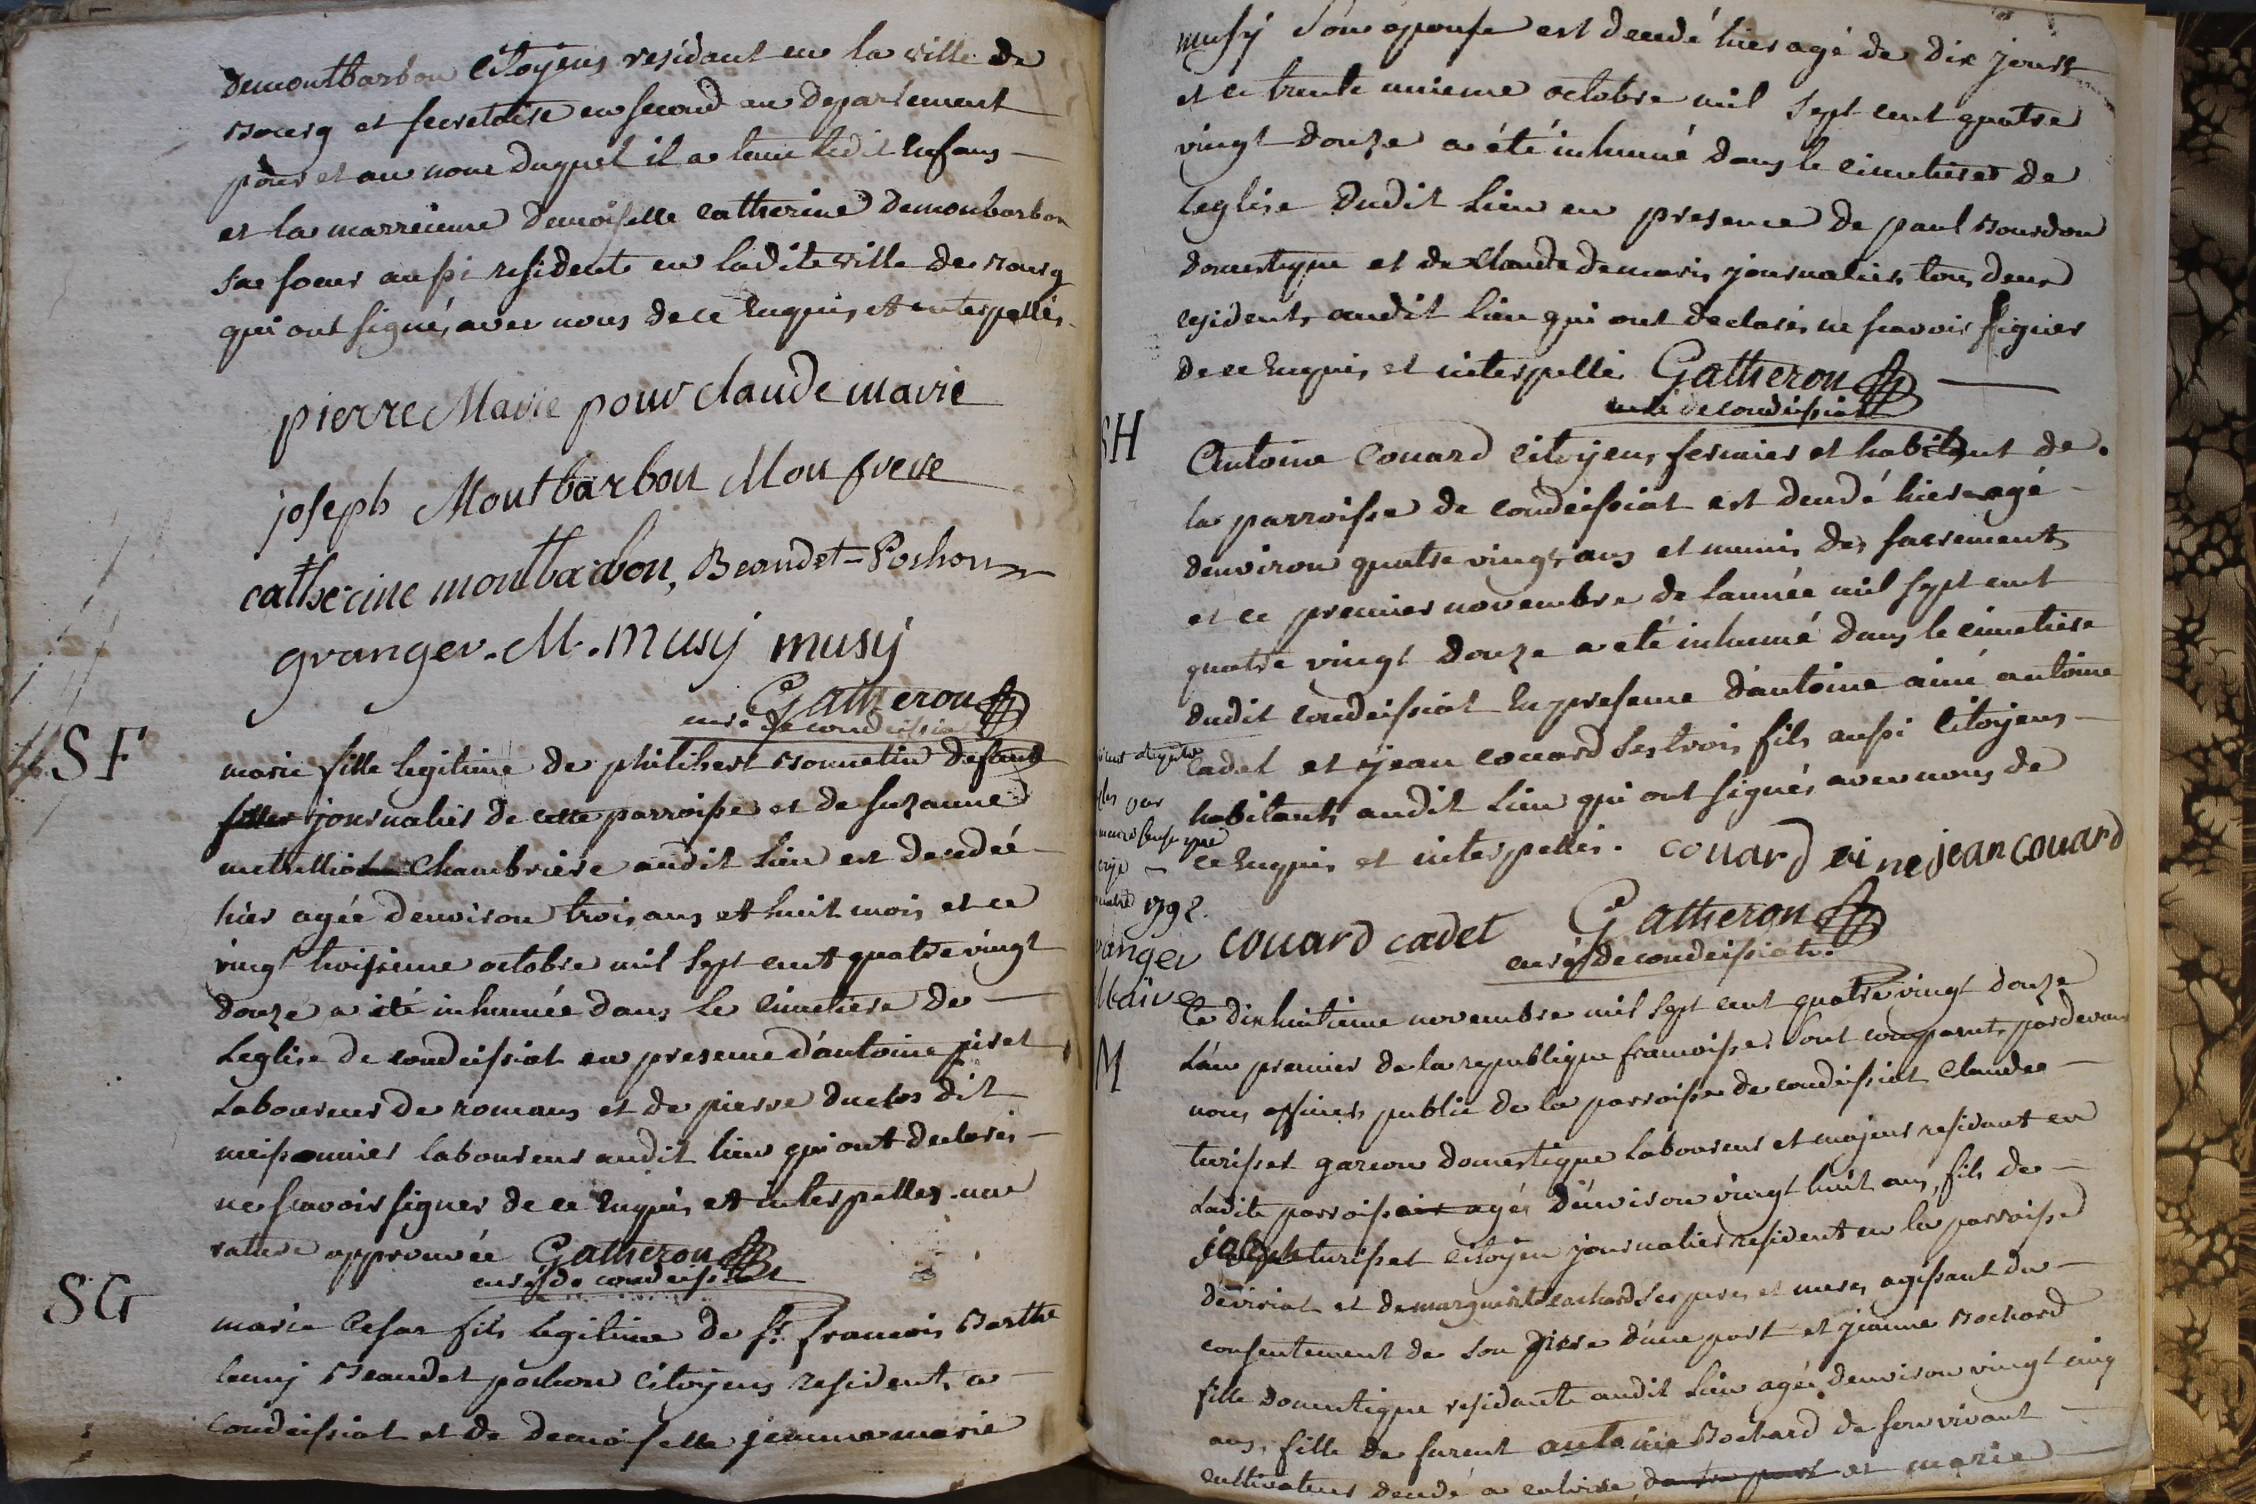 Demontbarbon citoyens residant en la ville de
Bourg et secretaire en second au departement
pour et au nom duquel il a tenu ledit Enfans
et la marreinne demoiselle catherine Demonbarbon
sa soeur aussi residente en ladite ville de Bourg
qui ont signés avec nous de ce Enquis et interpellés
pierre Marie pour claude marie
joseph Montbarbon Mon frere
catherine montbarbon, Beaudet-Pochon
granger. M. musy musy
Gatheron
curé de condeissiat
SF
marie fille legitime de philibert Bonnetin defunt
journalier de cette parroisse et de suzanne
chambriere audit lieu est decedée
hier agée denviron trois ans et huit mois et ce
vingt troisieme octobre mil sept cent quatre vingt
douze a été inhumée dans le cimetiere de
Leglise de condeissiat en presence d'antoine piret
Laboureur de romans et de pierre duclos dit
meissonnier laboureur audit lieu qui ont declarés
ne scavoir signer de ce Enquis et interpellés une
rature approuvée Gatheron
curé de condeissiat
SG
marie Cesar fils legitime de sr. francois Barthe
lemy Beaudet pochon citoyens resident a
Condeissiat et de demoiselle jeanne marie
musy son epouse est decedé hier agé de dix jours
et ce trente unieme octobre mil sept cent quatre
vingt douze a été inhumé dans le cimetiere de
Leglise dudit lieu en presence de paul Bourdon
domestique et de claude demaris journalier tous deux
residents audit lieu qui ont declarés ne scavoir signer
de ce Enquis et interpellés Gatheron
curé de condeissiat
SH
Antoine Couard citoyens fermier et habitant de
la parroisse de condeissiat est decedé hier agé
denviron quatre vingt ans et munis des sacrements
et ce premier novembre de lannée mil sept cent
quatre vingt douze a été inhumé dans le cimetiere
dudit condeissiat En presence dantoine ainé antoine
Cadet et jean couard ses trois fils aussi citoyens
habitants audit lieu qui ont signés avec nous de
ce Enquis et interpellés. couard ainé jean couard
par
1792.
couard cadet Gatheron
curé de condeissiat.
Maire
Ce dix huitieme novembre mil sept cent quatre vingt douze
M
L'an premier de la republique francoisse. sont comparuts pardevant
nous officier public de la parroisse de condeissiat Claude
turisset garcon domestique Laboureur et majeur residant en
Ladite parroisse agés d'environ vingt huit ans, fils de
joseph turisset citoyen journalier resident en la parroisse
de viriat et de marguerite cachard ses pere et mere, agissant du
consentement de son pere d'une part et jeanne Bochard
fille domestique residante audit lieu agée denviron vingt cinq
ans, fille de furent antoine Bochard de son vivant
cultivateur decedé a et marie